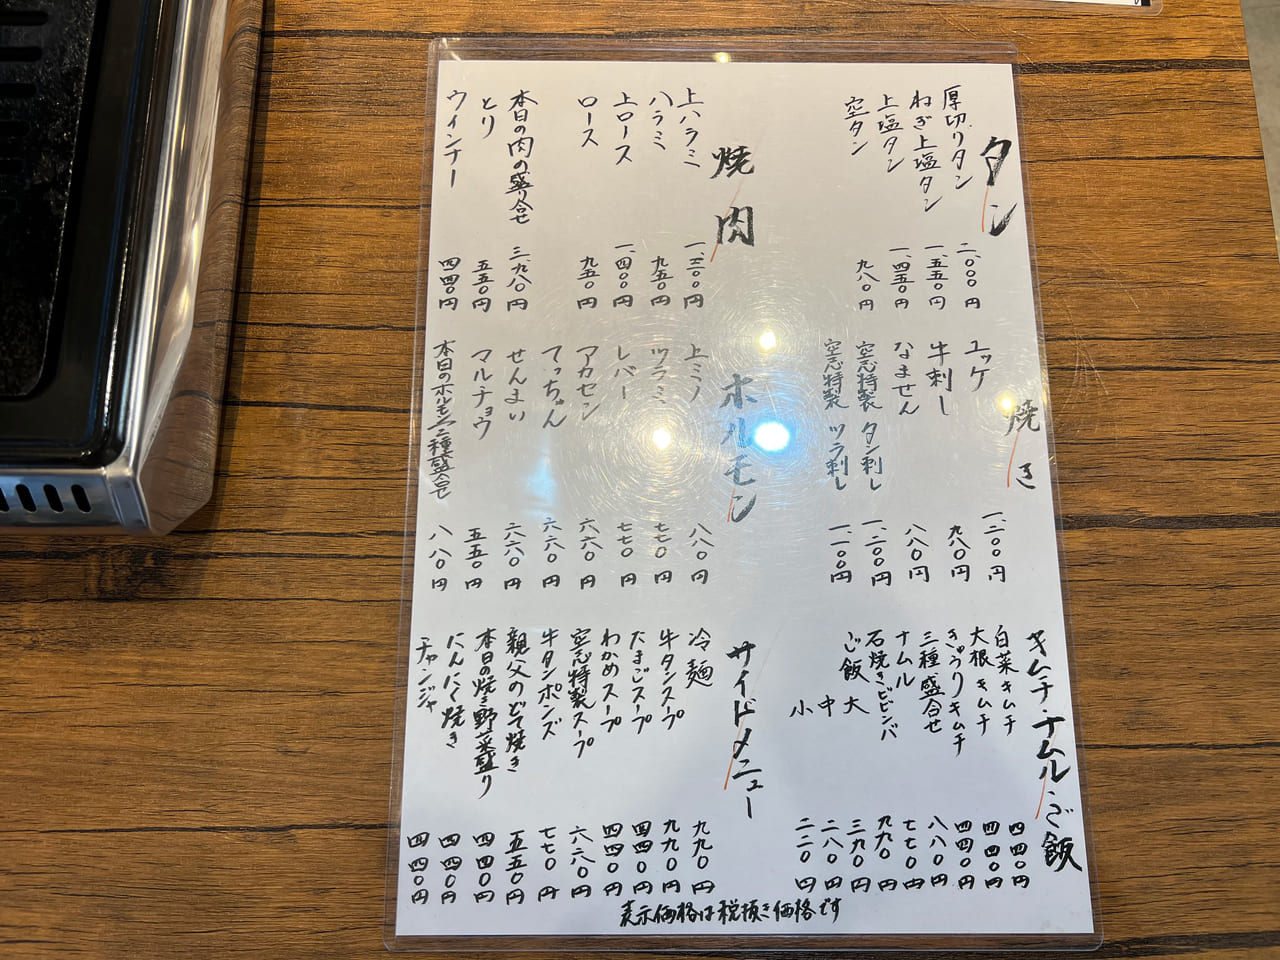 タン
厚切りタン 二、〇〇〇円
ねぎ上塩タン 一、五五〇円
上塩タン 一、四五〇円
空タン 九八〇円
焼き
ユッケ 一、二〇〇円
牛刺し 九八〇円
なません 八八〇円
空忘特製 タン刺し 一、二〇〇円
空忘特製 ツラ刺し 一、一〇〇円
キムチ・ナムル・ご飯
白菜キムチ 四四〇円
大根キムチ 四四〇円
きゅうりキムチ 四四〇円
三種盛合せ 八八〇円
ナムル 七七〇円
石焼きビビンバ 九九〇円
ご飯 大 三九〇円
中 二八〇円
小 二二〇円
焼肉
上ハラミ 一、三〇〇円
ハラミ 九五〇円
上ロース 一、四〇〇円
ロース 九五〇円
本日の肉の盛り合せ 三、九八〇円
とり 五五〇円
ウインナー 四四〇円
ホルモン
上ミノ 八八〇円
ツラミ 七七〇円
レバー 七七〇円
アカセン 六六〇円
てっちゃん 六六〇円
せんまい 六六〇円
マルチョウ 五五〇円
本日のホルモン三種盛合せ 八八〇円
サイドメニュー
冷麺 九九〇円
牛タンスープ 九九〇円
たまごスープ 四四〇円
わかめスープ 四四〇円
空忘特製スープ 六八〇円
牛タンポンズ 七七〇円
親父のどて焼き 五五〇円
本日の焼き野菜盛り 四四〇円
にんにく焼き 四四〇円
チャンジャ 四四〇円
表示価格は税抜き価格です